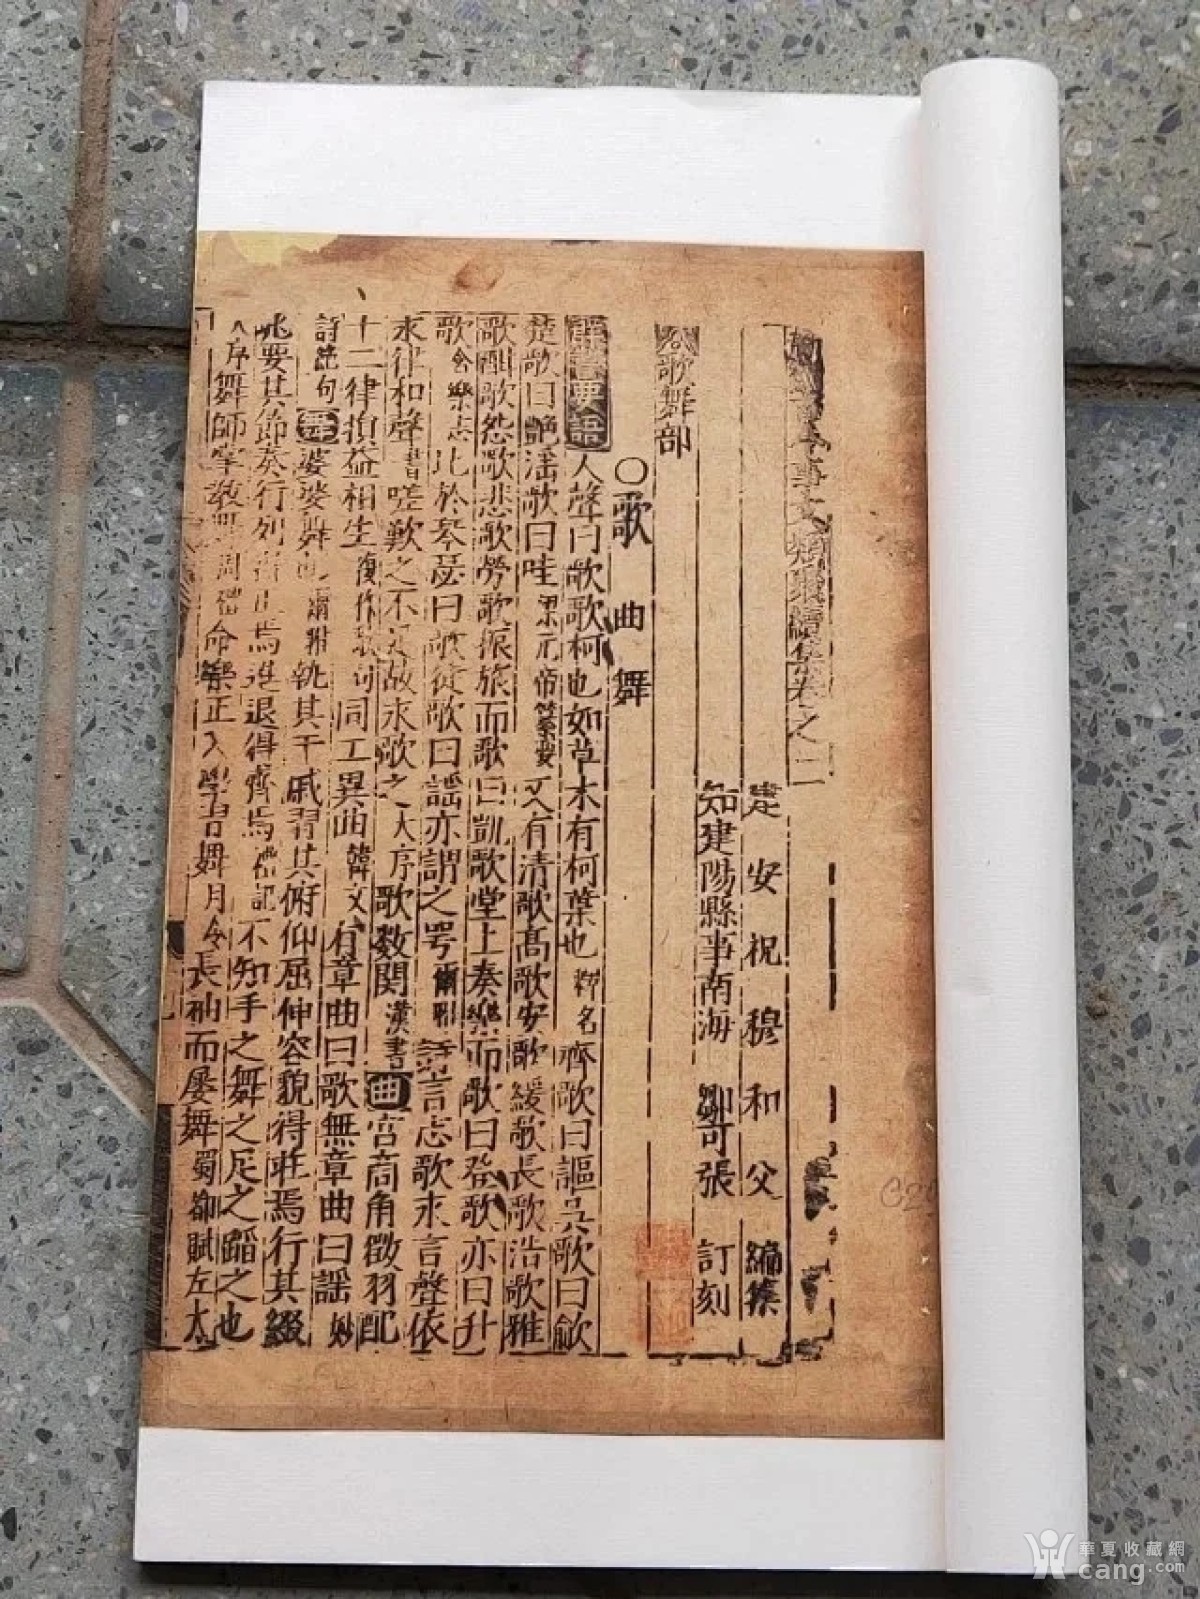 古今事文類聚續集卷之二
建安祝穆和父編集
知建陽縣事南海鄒可張訂刻
歌舞部
○歌曲舞
群書要語人聲曰歌歌柯也如草木有柯葉也釋名齊歌曰謳吳歌曰歈
楚歌曰艷滛歌曰哇梁元帝纂要又有清歌高歌安歌緩歌長歌浩歌雅
歌酣歌怨歌悲歌勞歌振旅而歌曰凱歌堂上奏樂而歌曰登歌亦曰升
歌合樂志比於琴瑟曰歌徒歌曰謡亦謂之咢爾雅詩言志歌永言聲依
永律和聲書嗟歎之不足故永歌之大序歌數闋漢書曲宮商角徵羽配
十二律損益相生復作歌詞同工異曲韓文有章曲曰歌無章曲曰謡妙
詩絶句舞婆娑舞也爾雅執其干戚習其俯仰屈伸容貌得莊焉行其綴
兆要其節奏行列得正焉進退得齊焉禮記不知手之舞之足之蹈之也
大序舞師掌敎舞周禮命樂正入學習舞月令長袖而屡舞蜀都賦左太
華夏收藏網
cang.com